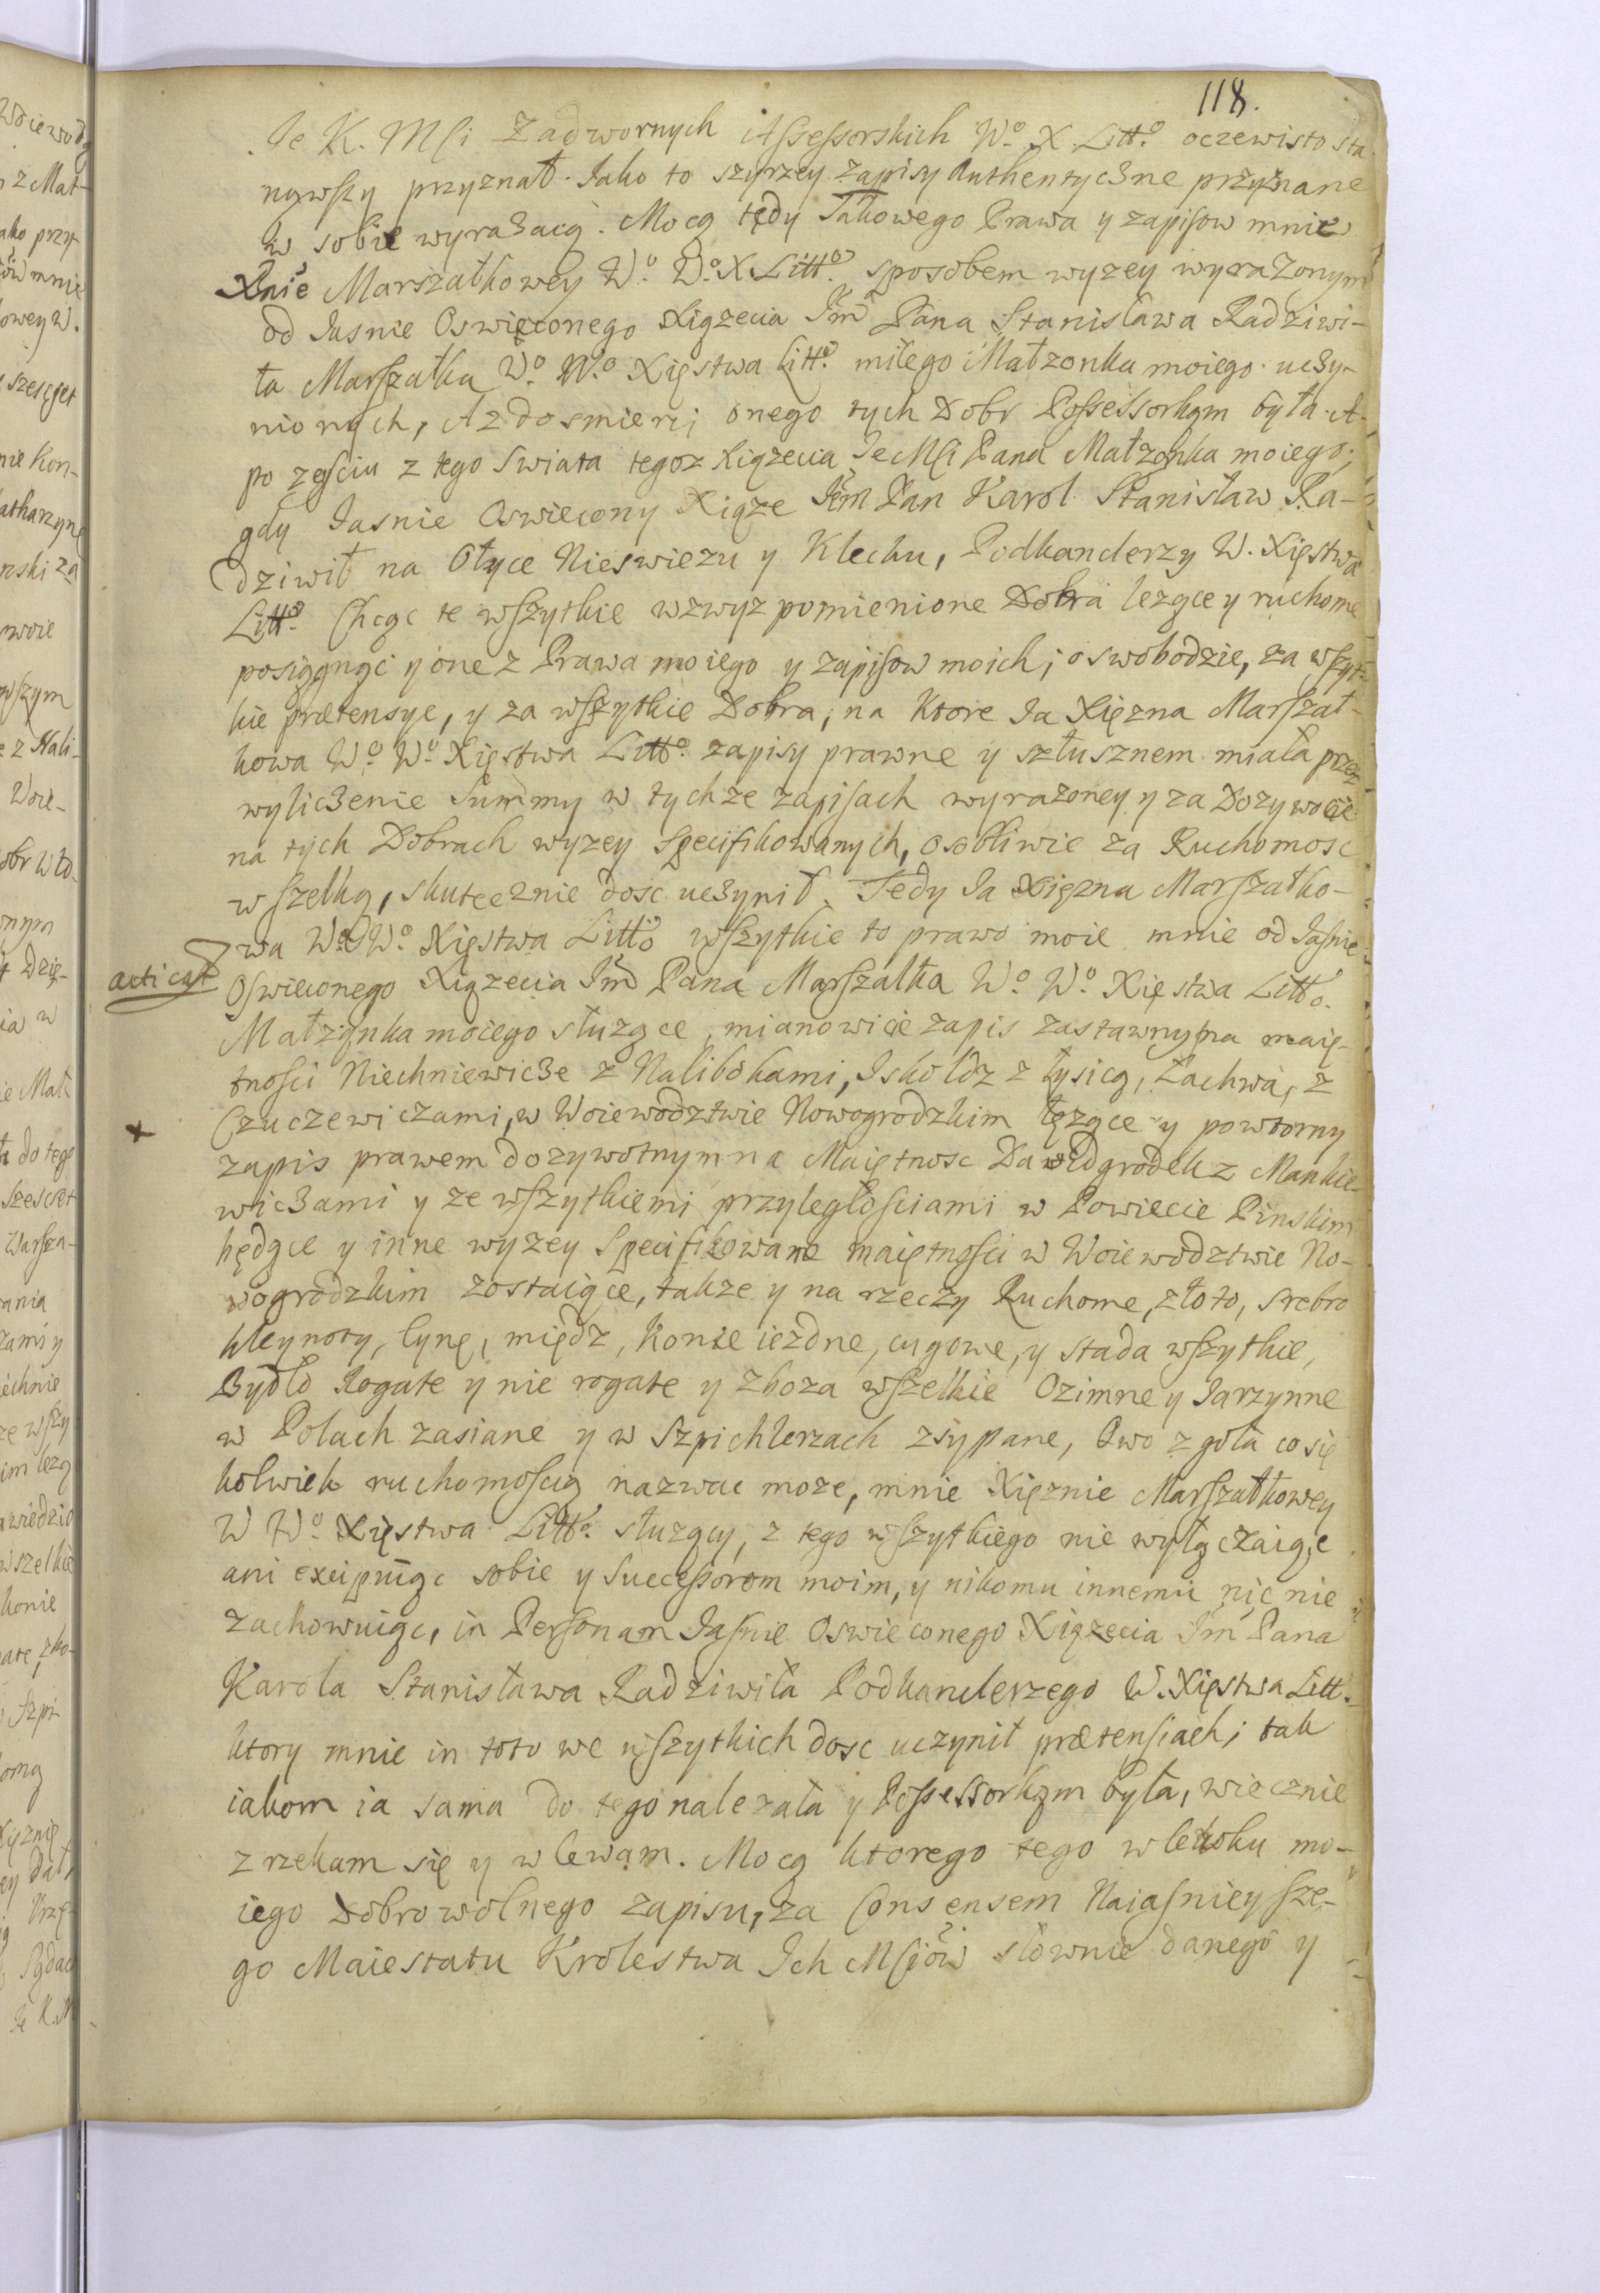 118.
Je K. Msci Zadwornych Assessorskich Wo. X. Litto. oczewisto sta-
nąwszy przyznał. Iako to szyrzey zapisy Authentyczne przyznane
w sobie wyrazaią. Mocą tędy Takowego Prawa y zapisow mnie
Xnie Marszałkowey Wo. Wo. X Litto. sposobem wyzey wyrazonym
od Iasnie Oswięconego Xiązecia Jm Pana Stanisława Radziwi-
ła Marszałka Wo. Wo. Xięstwa Litto. miłego Małzonka moiego uczy-
nionych, Az do smierci onego tych Dobr Possessorkąm była. A
po zesciu z tego swiata tegoz Xiązecia Je Msci Pana Małzonka moiego,
gdy Iasnie Oswiecony Xiąze Jem Pan Karol Stanisław Ra-
dziwił na Ołyce Nieswiezu y Klecku, Podkanclerzy W. Xięstwa
Litto. Chcąc te wszytkie wzwyz pomienione Dobra lezące y ruchome
posiągnąc y one z Prawa moiego y zapisow moich, oswobodzie, za wszyt-
kie prætensye, y za wszytkie Dobra, na Ktore Ia Xięzna Marszał-
kowa Wo. Wo. Xięstwa Litto. zapisy prawne y szłusznem miała przez
wyliczenie Summy w tychze zapisach wyrazoney y za Dozywocie
na tych Dobrach wyzey specifikowanych, osobliwie za Ruchomosc
wszelką, skutecznie dosc uczynił. Tedy Ia Xięzna Marszałko-
wa Wo. Wo. Xięstwa Litto wszytkie to prawo moie mnie od Iasnie
Oswieconego Xiązecia Jm Pana Marszałka Wo. Wo. Xięstwa Litto.
Małzonka moiego słuzące, mianowicie zapis zastawny na maię-
tnosci Niechniewicze z Nalibokami, Iskołdz z Łysicą, Lachwa, z
Czuczewiczami, w Woiewodztwie Nowogrodzkim lęzące y powtorny
zapis prawem dozywotnym na Maiętnosc Dawidgrodek z Mankie-
wiczami y ze wszytkiemi przyległosciami w Powiecie Pinskim
będące y inne wyzey specifikowane maiętnosci w Woiewodztwie No-
wogrodzkim zostaiące, takze y na rzeczy Ruchome, złoto, srebro
kleynoty, Cynę, międz, Konie iezdne, cugowe, y stada wszytkie,
Bydło Rogate y nie rogate y zboza wszelkie Ozimne y Iarzynne
w Polach zasiane y w Szpichlerzach zsypane, Owo zgoła co się
kolwiek ruchomoscią nazwac moze, mnie Xięznie Marszałkowey
W Wo. Xięstwa Litto. słuzący, z tego wszytkiego nie wyłączaiąc
ani excipuiąc sobie y Successorom moim, y nikomu innemu nic nie
zachowuiąc, in Personam Iasnie Oswieconego Xiązecia Jm Pana
Karola Stanisława Radziwiła Podkanclerzego W. Xięstwa Litt.
ktory mnie in toto we wszytkich dosc uczynił prætensiach, tak
iakom ia sama do tego nalezała y Possessorkąm była, wiecznie
zrzekam się y wlewam. Mocą ktorego tego wlewku mo-
iego Dobrowolnego zapisu, za Consensem Naiasnieysze-
go Maiestatu Krolestwa Ich Mscjów słownie danego y
acticat
+